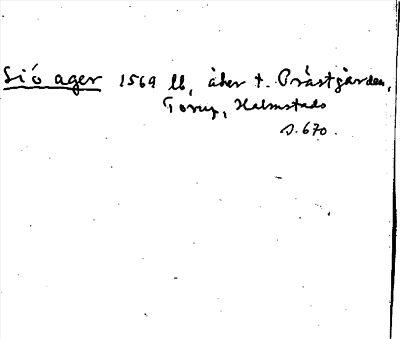 Siö ager 1569 ll, åker t. Prästgården,
Torup, Halmstads
s. 670.